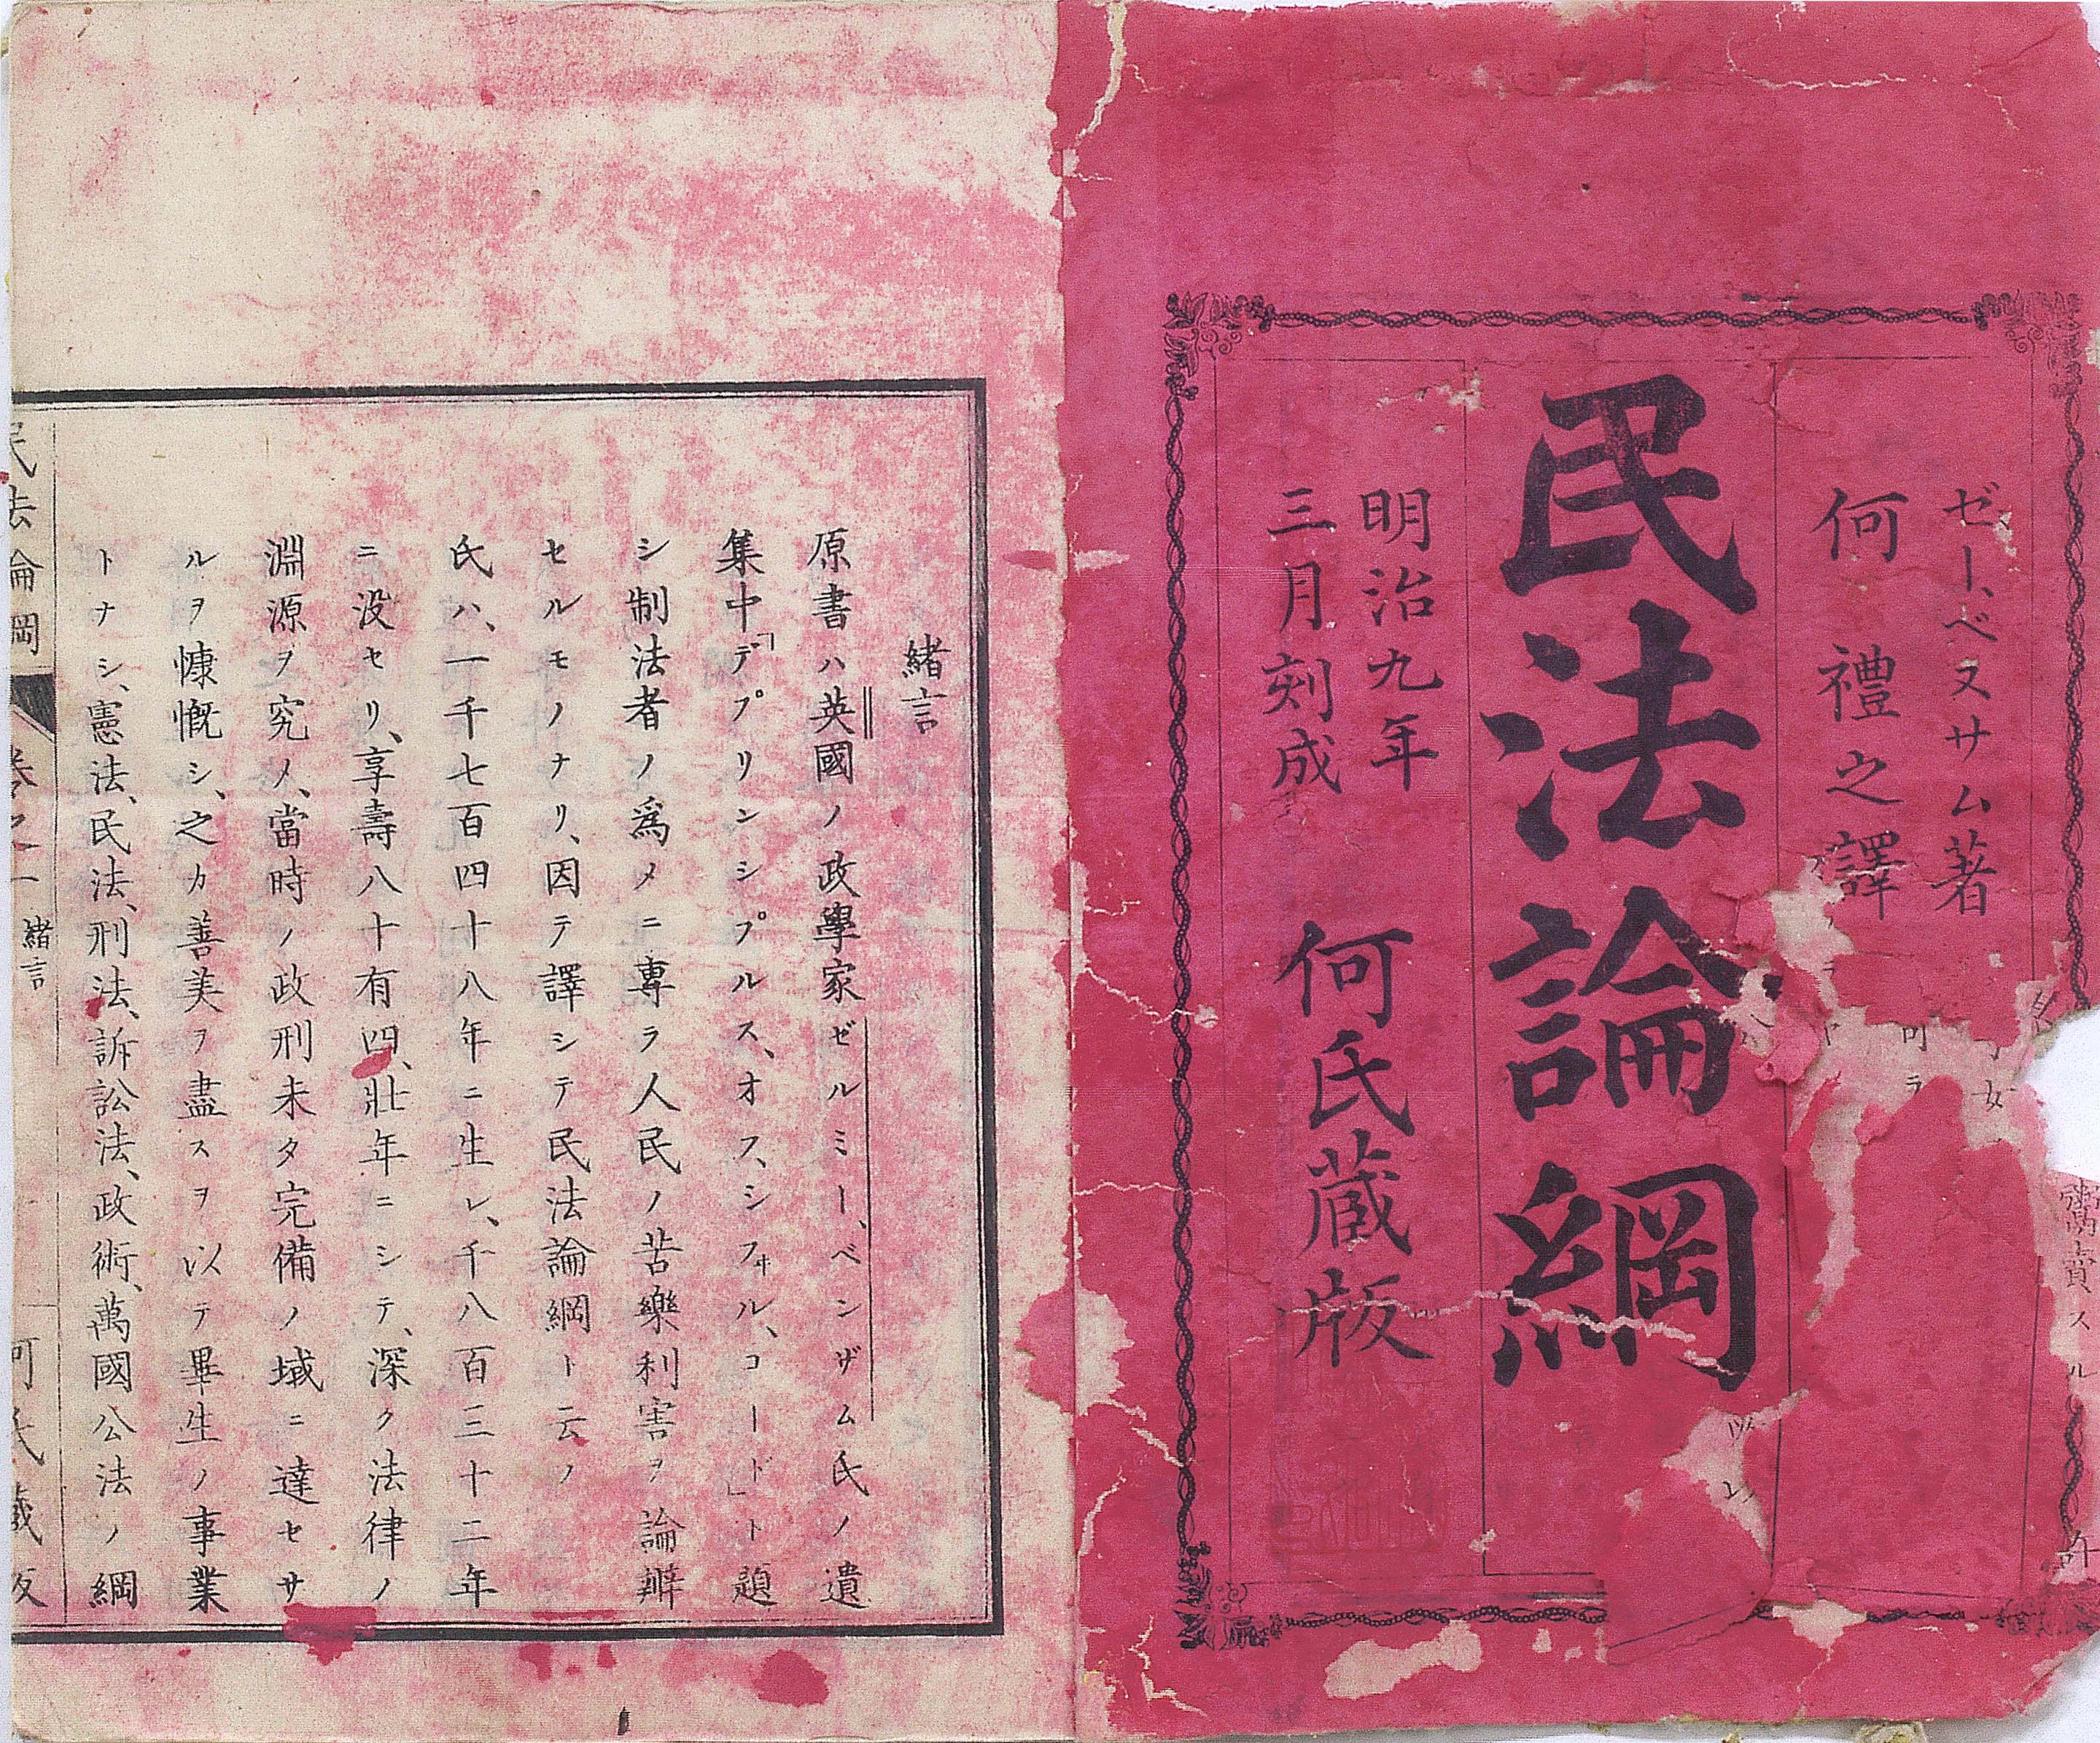 ゼー、ベヌサム著
何禮之譯
民法論綱
明治九年
三月刻成
何氏蔵版
緒言
原書ハ英國ノ政學家ゼルミー、ベンザム氏ノ遺
集中「デプリンシプルス、オフ、シフ井ル、コード」ト題
シ制法者ノ爲メニ專ラ人民ノ苦樂利害ヲ論辨
セルモノナリ、因テ譯シテ民法論綱ト云ノ
氏ハ、一千七百四十八年ニ生レ、千八百三十二年
ニ没セリ、享壽八十有四、壯年ニシテ、深ク法律ノ
淵源ヲ究メ、當時ノ政刑未タ完備ノ域ニ達セサ
ルヲ慷慨シ、之カ善美ヲ盡スヲ以テ畢生ノ事業
トナシ、憲法、民法、刑法、訴訟法、政術、萬國公法ノ綱
民法論綱 卷之一 緒言 何氏藏版